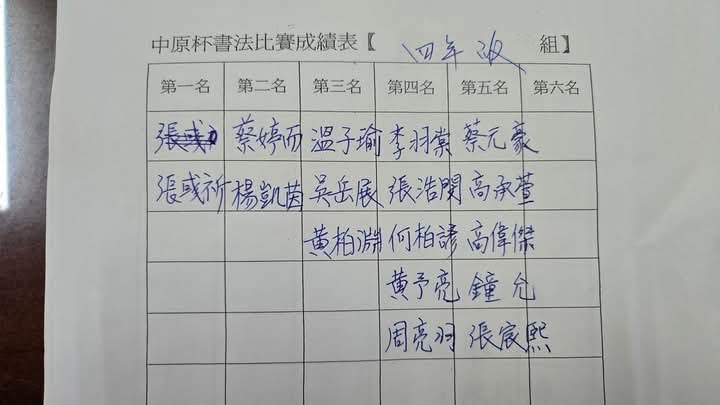 中原杯書法比賽成績表【 四年級 組】
第一名 第二名 第三名 第四名 第五名 第六名
張彧 蔡婷而 溫子瑜 李羽棠 蔡元豪
張彧祈 楊凱茵 吳岳展 張浩閔 高承萱
黃柏淵 何柏諺 高偉傑
黃予亮 鐘允
周亮羽 張宸熙